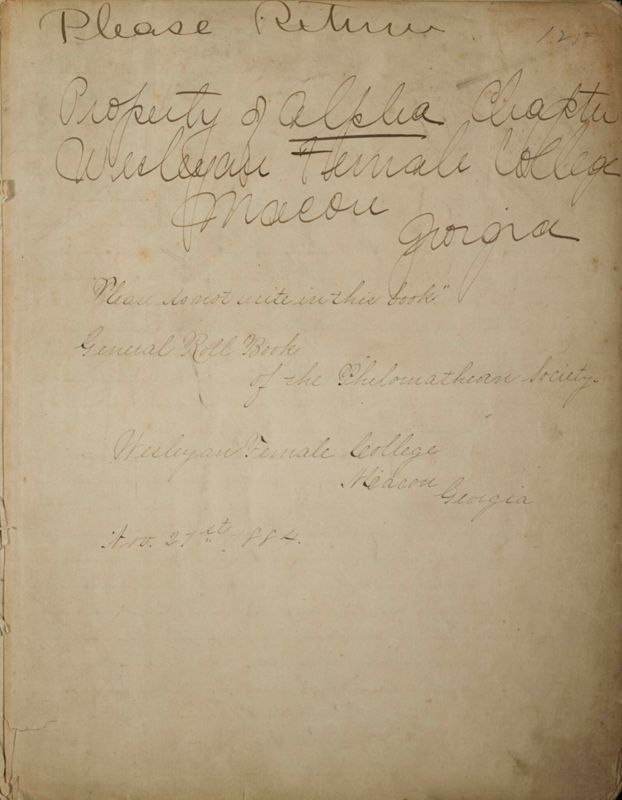 Please Return
Property of Alpha Chapter
Wesleyan Female College
Macon
Georgia
"Please do not write in this book"
General Roll Book
of the Philomathean Society.
Wesleyan Female College
Macon
Georgia
Nov. 21st, 1884.